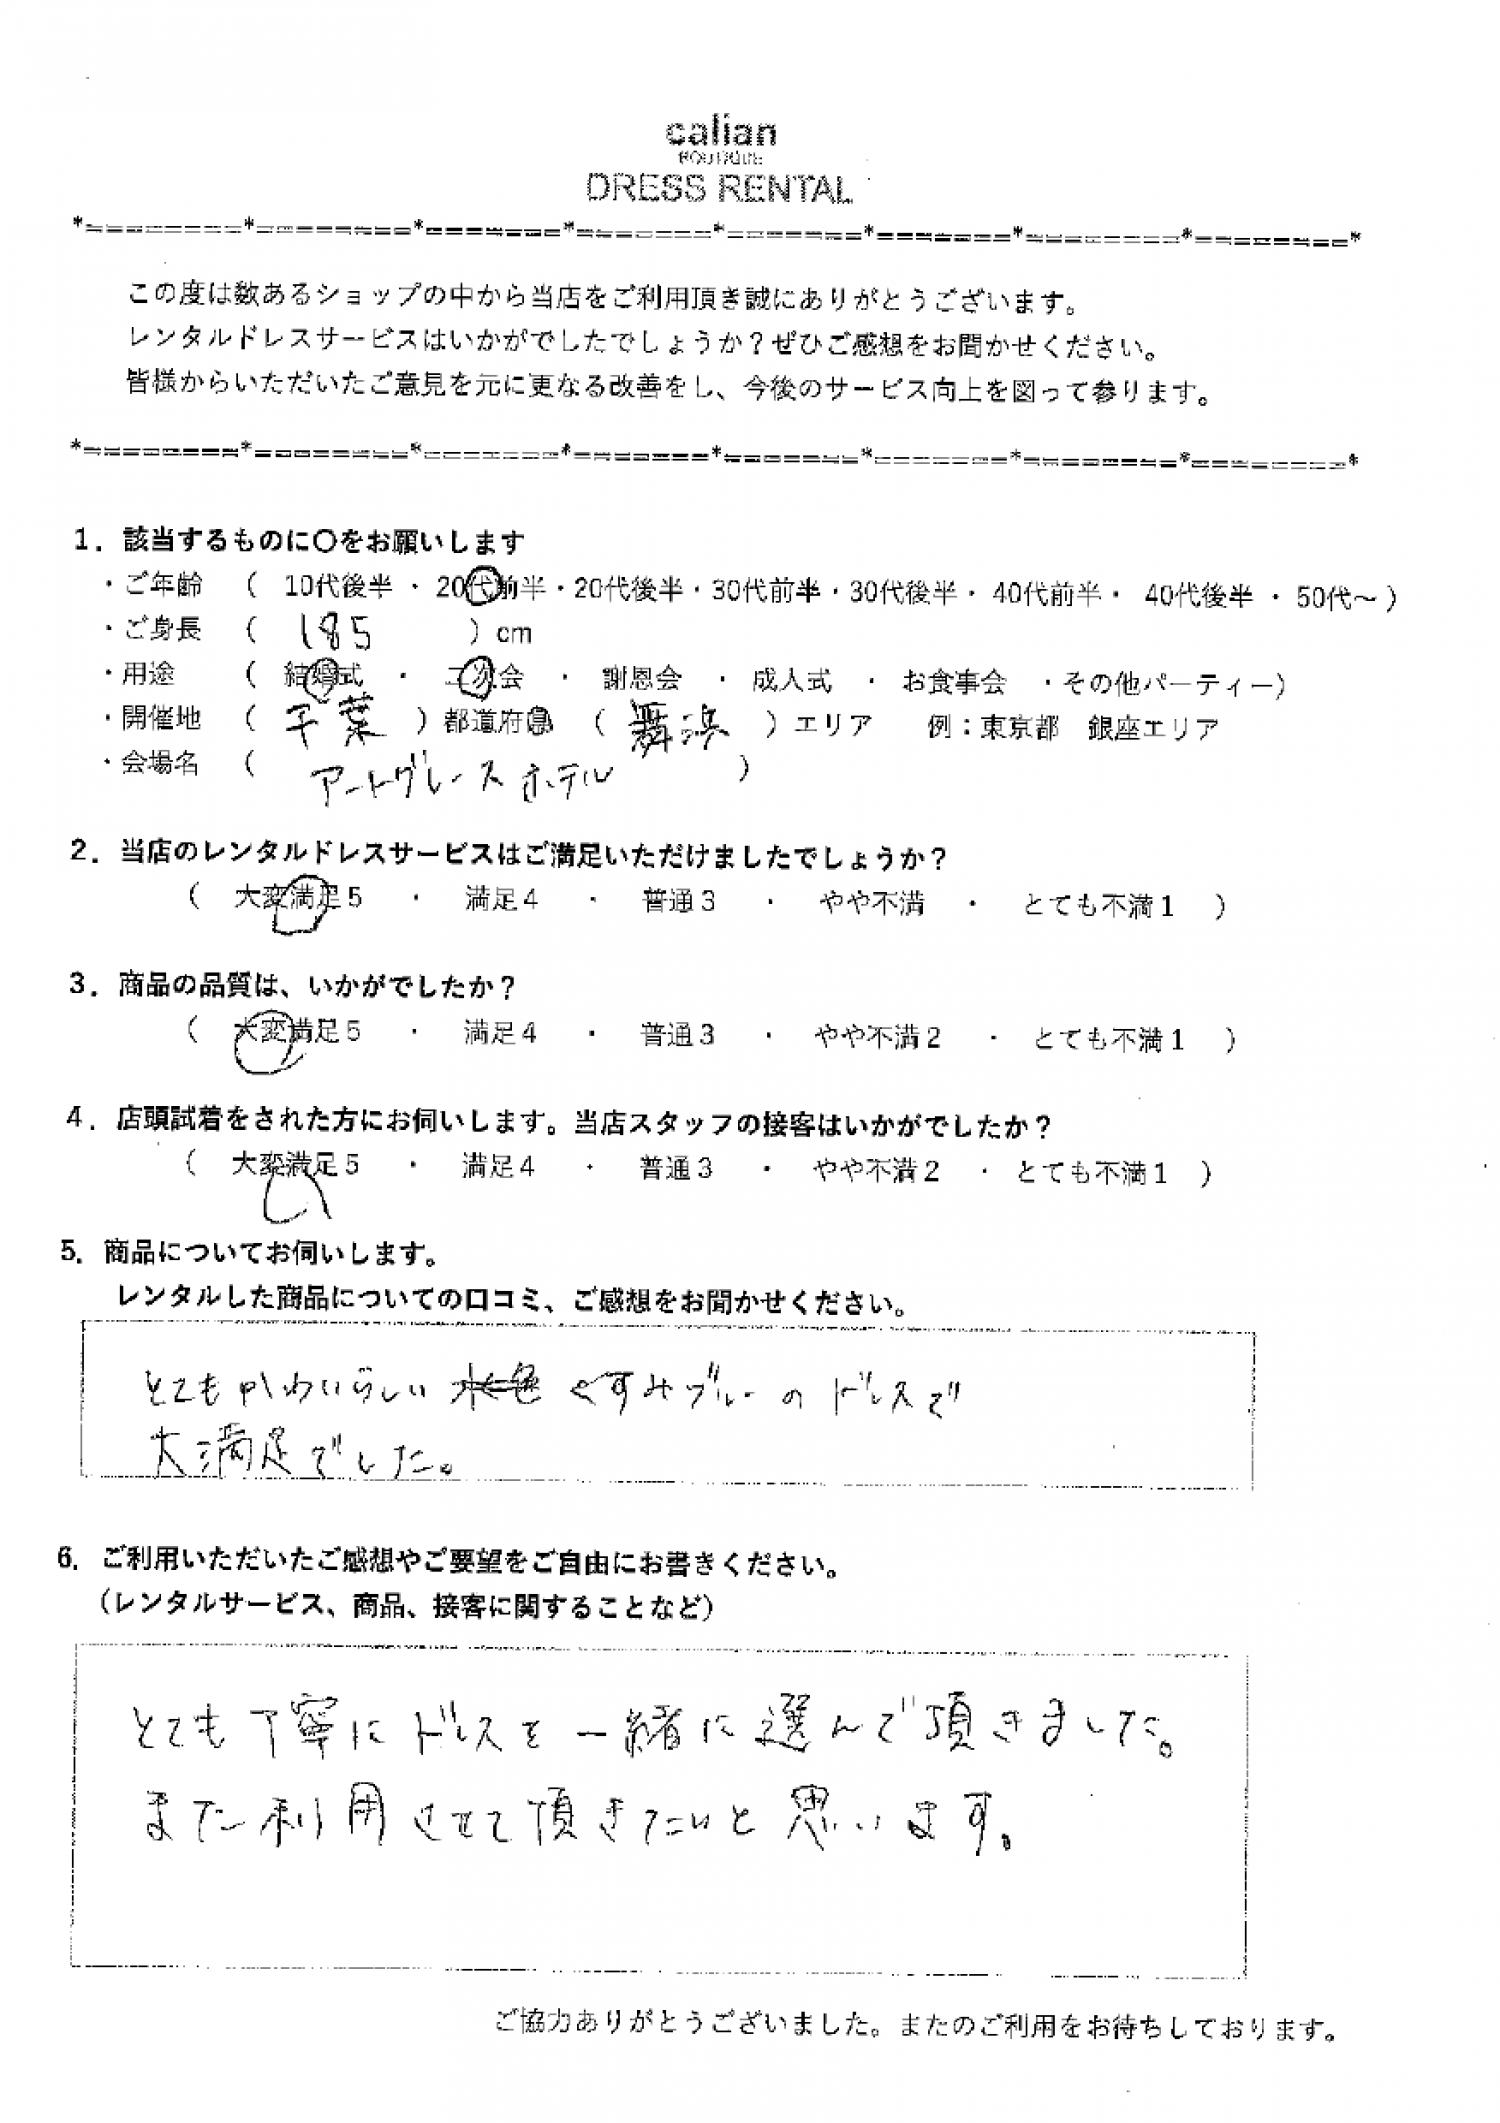 calian
BOUTIQUE
DRESS RENTAL
*========*========*=======*=======*=======*=======*========*========*
この度は数あるショップの中から当店をご利用頂き誠にありがとうございます。
レンタルドレスサービスはいかがでしたでしょうか？ぜひご感想をお聞かせください。
皆様からいただいたご意見を元に更なる改善をし、今後のサービス向上を図って参ります。
*========*========*=======*=======*=======*=======*========*========*
1．該当するものに〇をお願いします
・ご年齢 （ 10代後半 ・ 20代前半・20代後半・30代前半・30代後半・ 40代前半・ 40代後半 ・ 50代～ ）
・ご身長 （ 185 ） cm
・用途 （ 結婚式 ・ 二次会 ・ 謝恩会 ・ 成人式 ・ お食事会 ・その他パーティー）
・開催地 （ 千葉 ）都道府県 （ 舞浜 ）エリア 例：東京都 銀座エリア
・会場名 （ アートグレースホテル ）
2．当店のレンタルドレスサービスはご満足いただけましたでしょうか？
（ 大変満足５ ・ 満足４ ・ 普通３ ・ やや不満 ・ とても不満１ ）
3．商品の品質は、いかがでしたか？
（ 大変満足５ ・ 満足４ ・ 普通３ ・ やや不満２ ・ とても不満１ ）
4．店頭試着をされた方にお伺いします。当店スタッフの接客はいかがでしたか？
（ 大変満足５ ・ 満足４ ・ 普通３ ・ やや不満２ ・ とても不満１ ）
5．商品についてお伺いします。
レンタルした商品についての口コミ、ご感想をお聞かせください。
とてもかわいらしい 水色 くすみブルーの ドレスで
大満足でした。
6．ご利用いただいたご感想やご要望をご自由にお書きください。
（レンタルサービス、商品、接客に関することなど）
とても丁寧にドレスを一緒に選んで頂きました。
また利用させて頂きたいと思います。
ご協力ありがとうございました。またのご利用をお待ちしております。